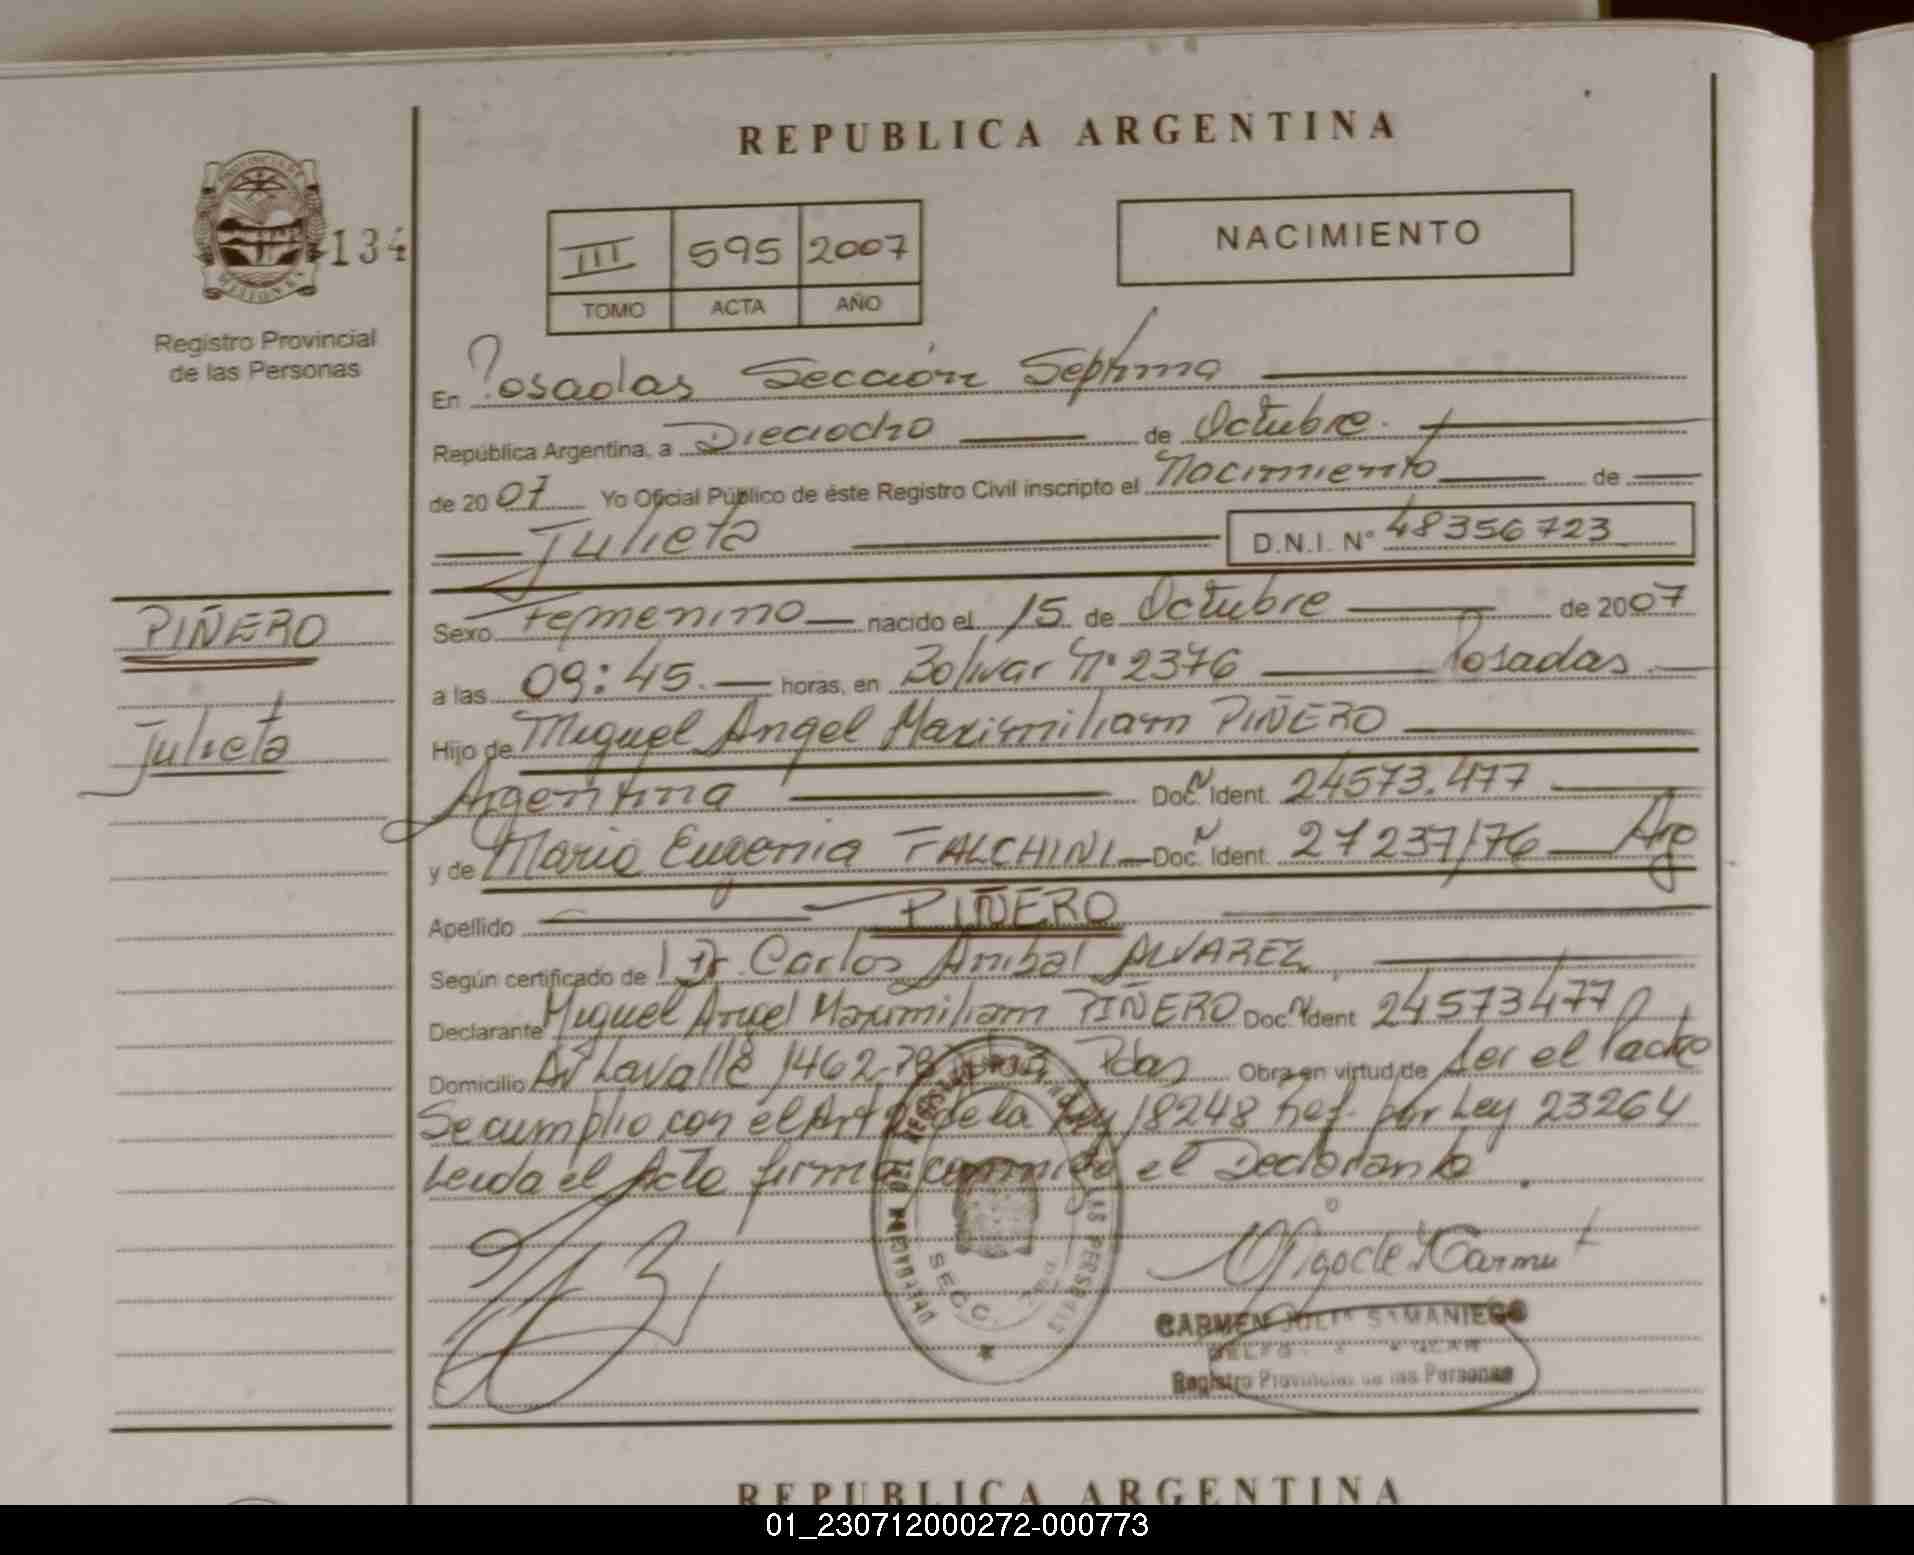 REPUBLICA ARGENTINA
134
III 595 2007
TOMO ACTA AÑO
NACIMIENTO
Registro Provincial
de las Personas
En Posadas Sección Septima
República Argentina, a Dieciocho de Octubre.
de 2007 Yo Oficial Público de éste Registro Civil inscripto el Nacimiento de
Julieta D.N.I. N° 48356723
PIÑERO
Julieta
Sexo Femenino nacido el 15 de Octubre de 2007
a las 09:45. horas, en Bolivar N° 2376 Posadas
Hijo de Miguel Angel Maximiliam PIÑERO
Argentina Doc. Ident. 24573.477
y de Maria Eugenia TALCHINI Doc. Ident. 27237176 Arg
Apellido PIÑERO
Según certificado de Dr. Carlos Anibal ALVAREZ
Declarante Miguel Angel Maximiliam PIÑERO Doc. Ident 24573477
Domicilio Av Lavalle 1462 Pdas Obra en virtud de ser el Padre
Se cumplio con el Art de la Ley 18248 Ref. por Ley 23264
Leida el Acta firma conmigo el Declarante
SECC.
CARMEN JULIA SAMANIEGO
Registro Provincial de las Personas
REPUBLICA ARGENTINA
01_230712000272-000773